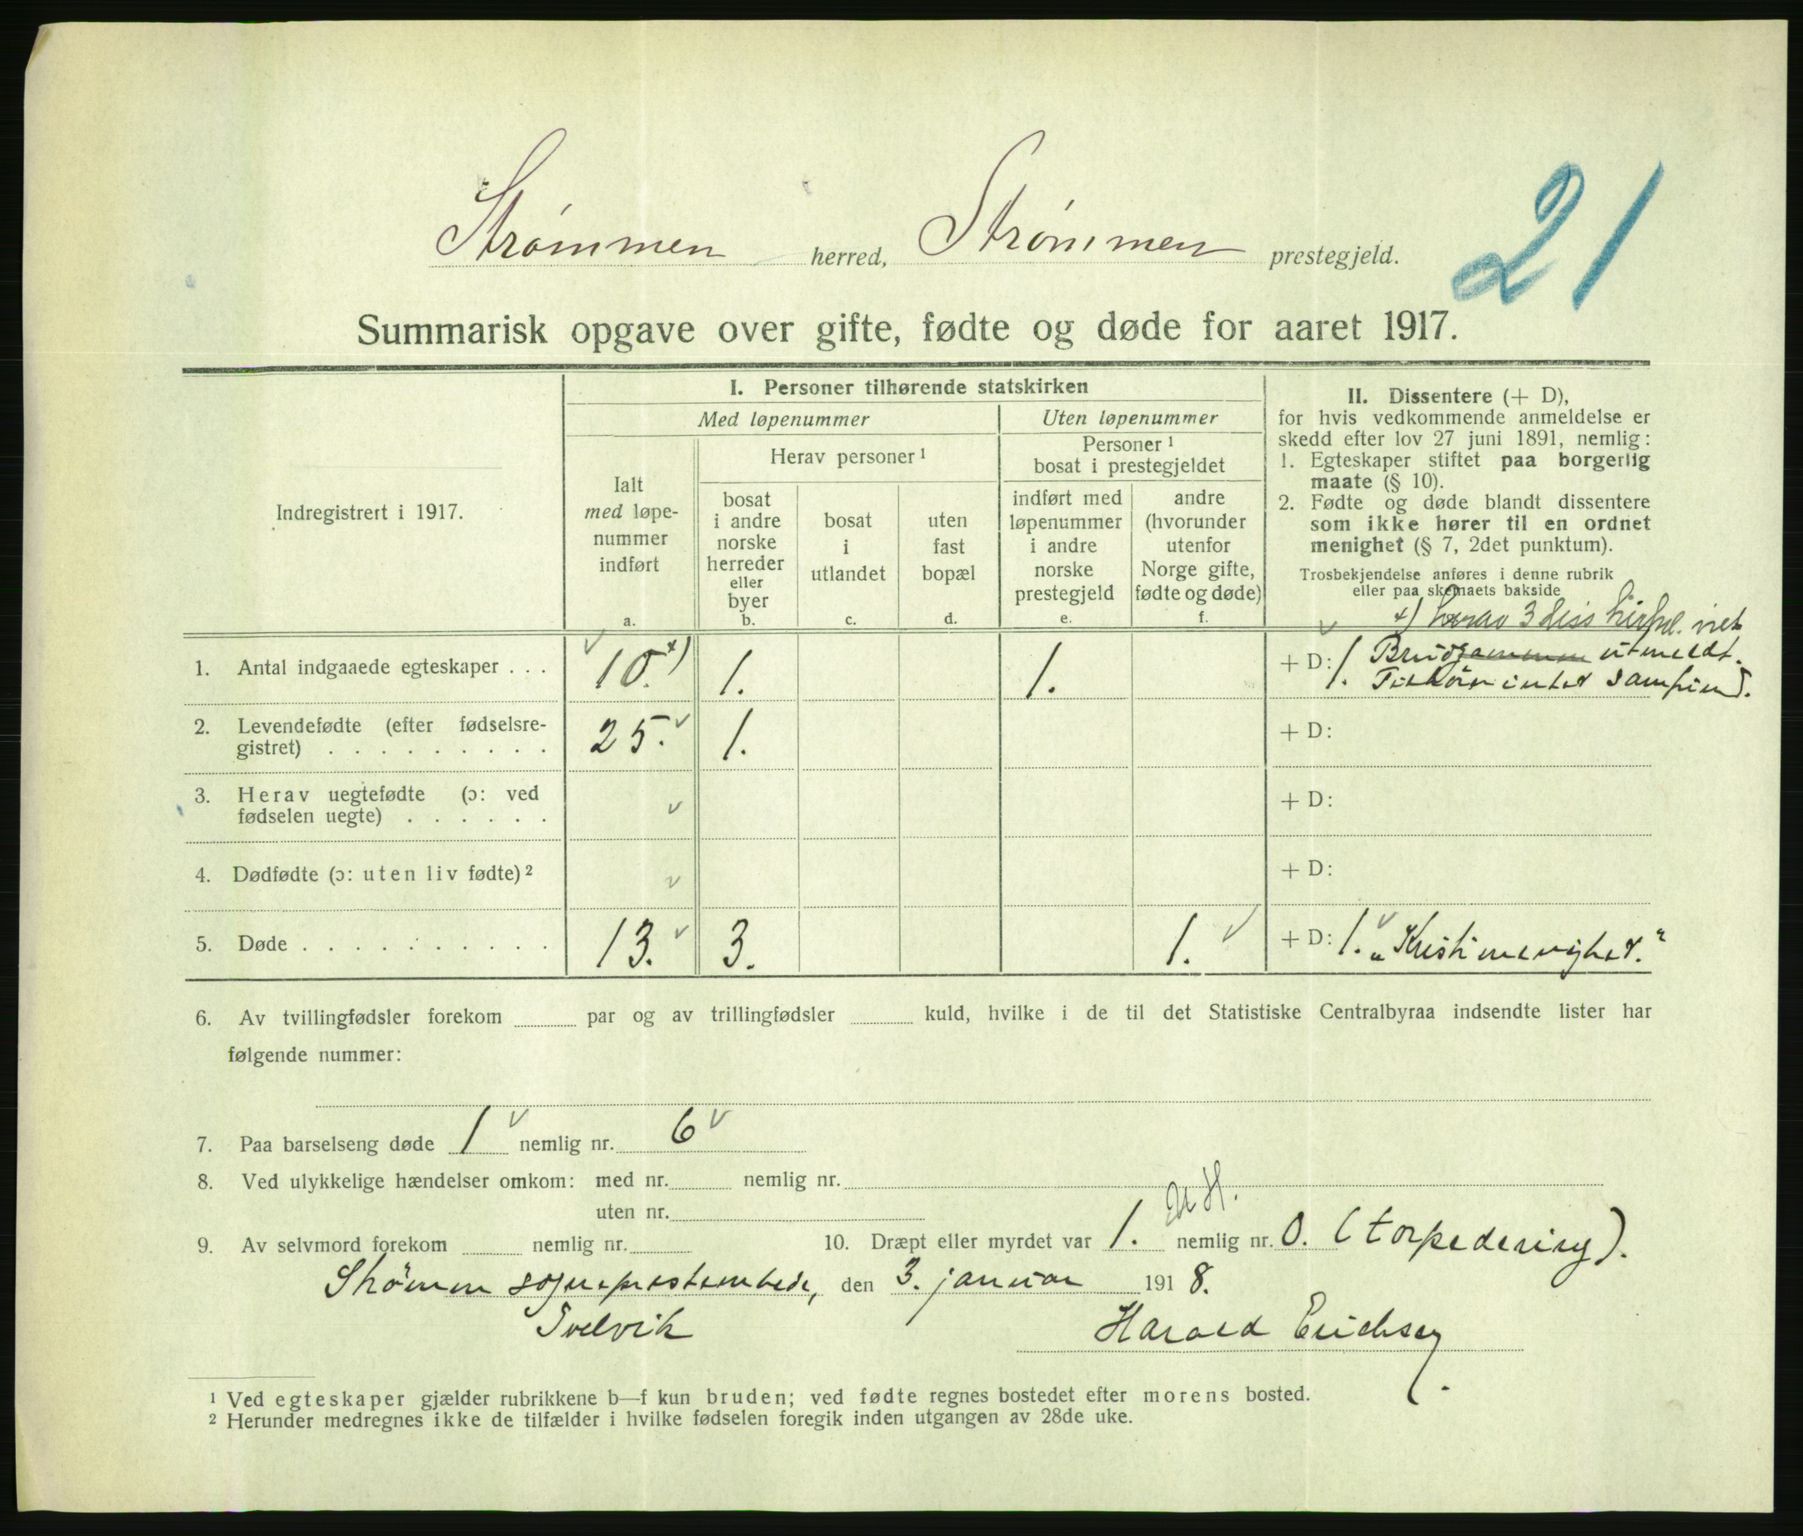 21
Strømmen herred, Strømmen prestegjeld.
Summarisk opgave over gifte, fødte og døde for aaret 1917.
Indregistrert i 1917.
I. Personer tilhørende statskirken
Med løpenummer
Uten løpenummer
Ialt
med løpe-
nummer
indført
a.
Herav personer 1
bosat
i andre
norske
herreder
eller
byer
b.
bosat
i
utlandet
c.
uten
fast
bopæl
d.
Personer 1
bosat i prestegjeldet
indført med
løpenummer
i andre
norske
prestegjeld
e.
andre
(hvorunder
utenfor
Norge gifte,
fødte og døde)
f.
II. Dissentere (+ D),
for hvis vedkommende anmeldelse er
skedd efter lov 27 juni 1891, nemlig:
1. Egteskaper stiftet paa borgerlig
maate (§ 10).
2. Fødte og døde blandt dissentere
som ikke hører til en ordnet
menighet (§ 7, 2det punktum).
Trosbekjendelse anføres i denne rubrik
eller paa skemaets bakside
x) herav 3 diss kirkel. viet
1. Antal indgaaede egteskaper . . . 10. x) 1. 1. + D: 1. Brudgommen utmeldt.
Tilhører intet samfund.
2. Levendefødte (efter fødselsre-
gistret) . . . . . . . . . 25. 1. + D:
3. Herav uegtefødte (ɔ: ved
fødselen uegte) . . . . . . + D:
4. Dødfødte (ɔ: uten liv fødte) 2 + D:
5. Døde . . . . . . . . . . 13. 3. 1. + D: 1. „Kristi menighet."
6. Av tvillingfødsler forekom par og av trillingfødsler kuld, hvilke i de til det Statistiske Centralbyraa indsendte lister har
følgende nummer:
7. Paa barselseng døde 1 nemlig nr. 6
8. Ved ulykkelige hændelser omkom: med nr. nemlig nr.
uten nr.
9. Av selvmord forekom nemlig nr. 10. Dræpt eller myrdet var 1. nemlig nr. 0. (torpedering).
Strømm sogneprestembede, den 3. januar 1918.
Svelvik
Harald Erichsen.
1 Ved egteskaper gjælder rubrikkene b—f kun bruden; ved fødte regnes bostedet efter morens bosted.
2 Herunder medregnes ikke de tilfælder i hvilke fødselen foregik inden utgangen av 28de uke.